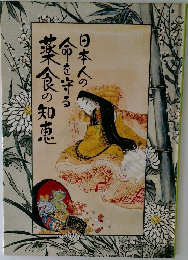 日本人の
命を守る
薬食の知恵